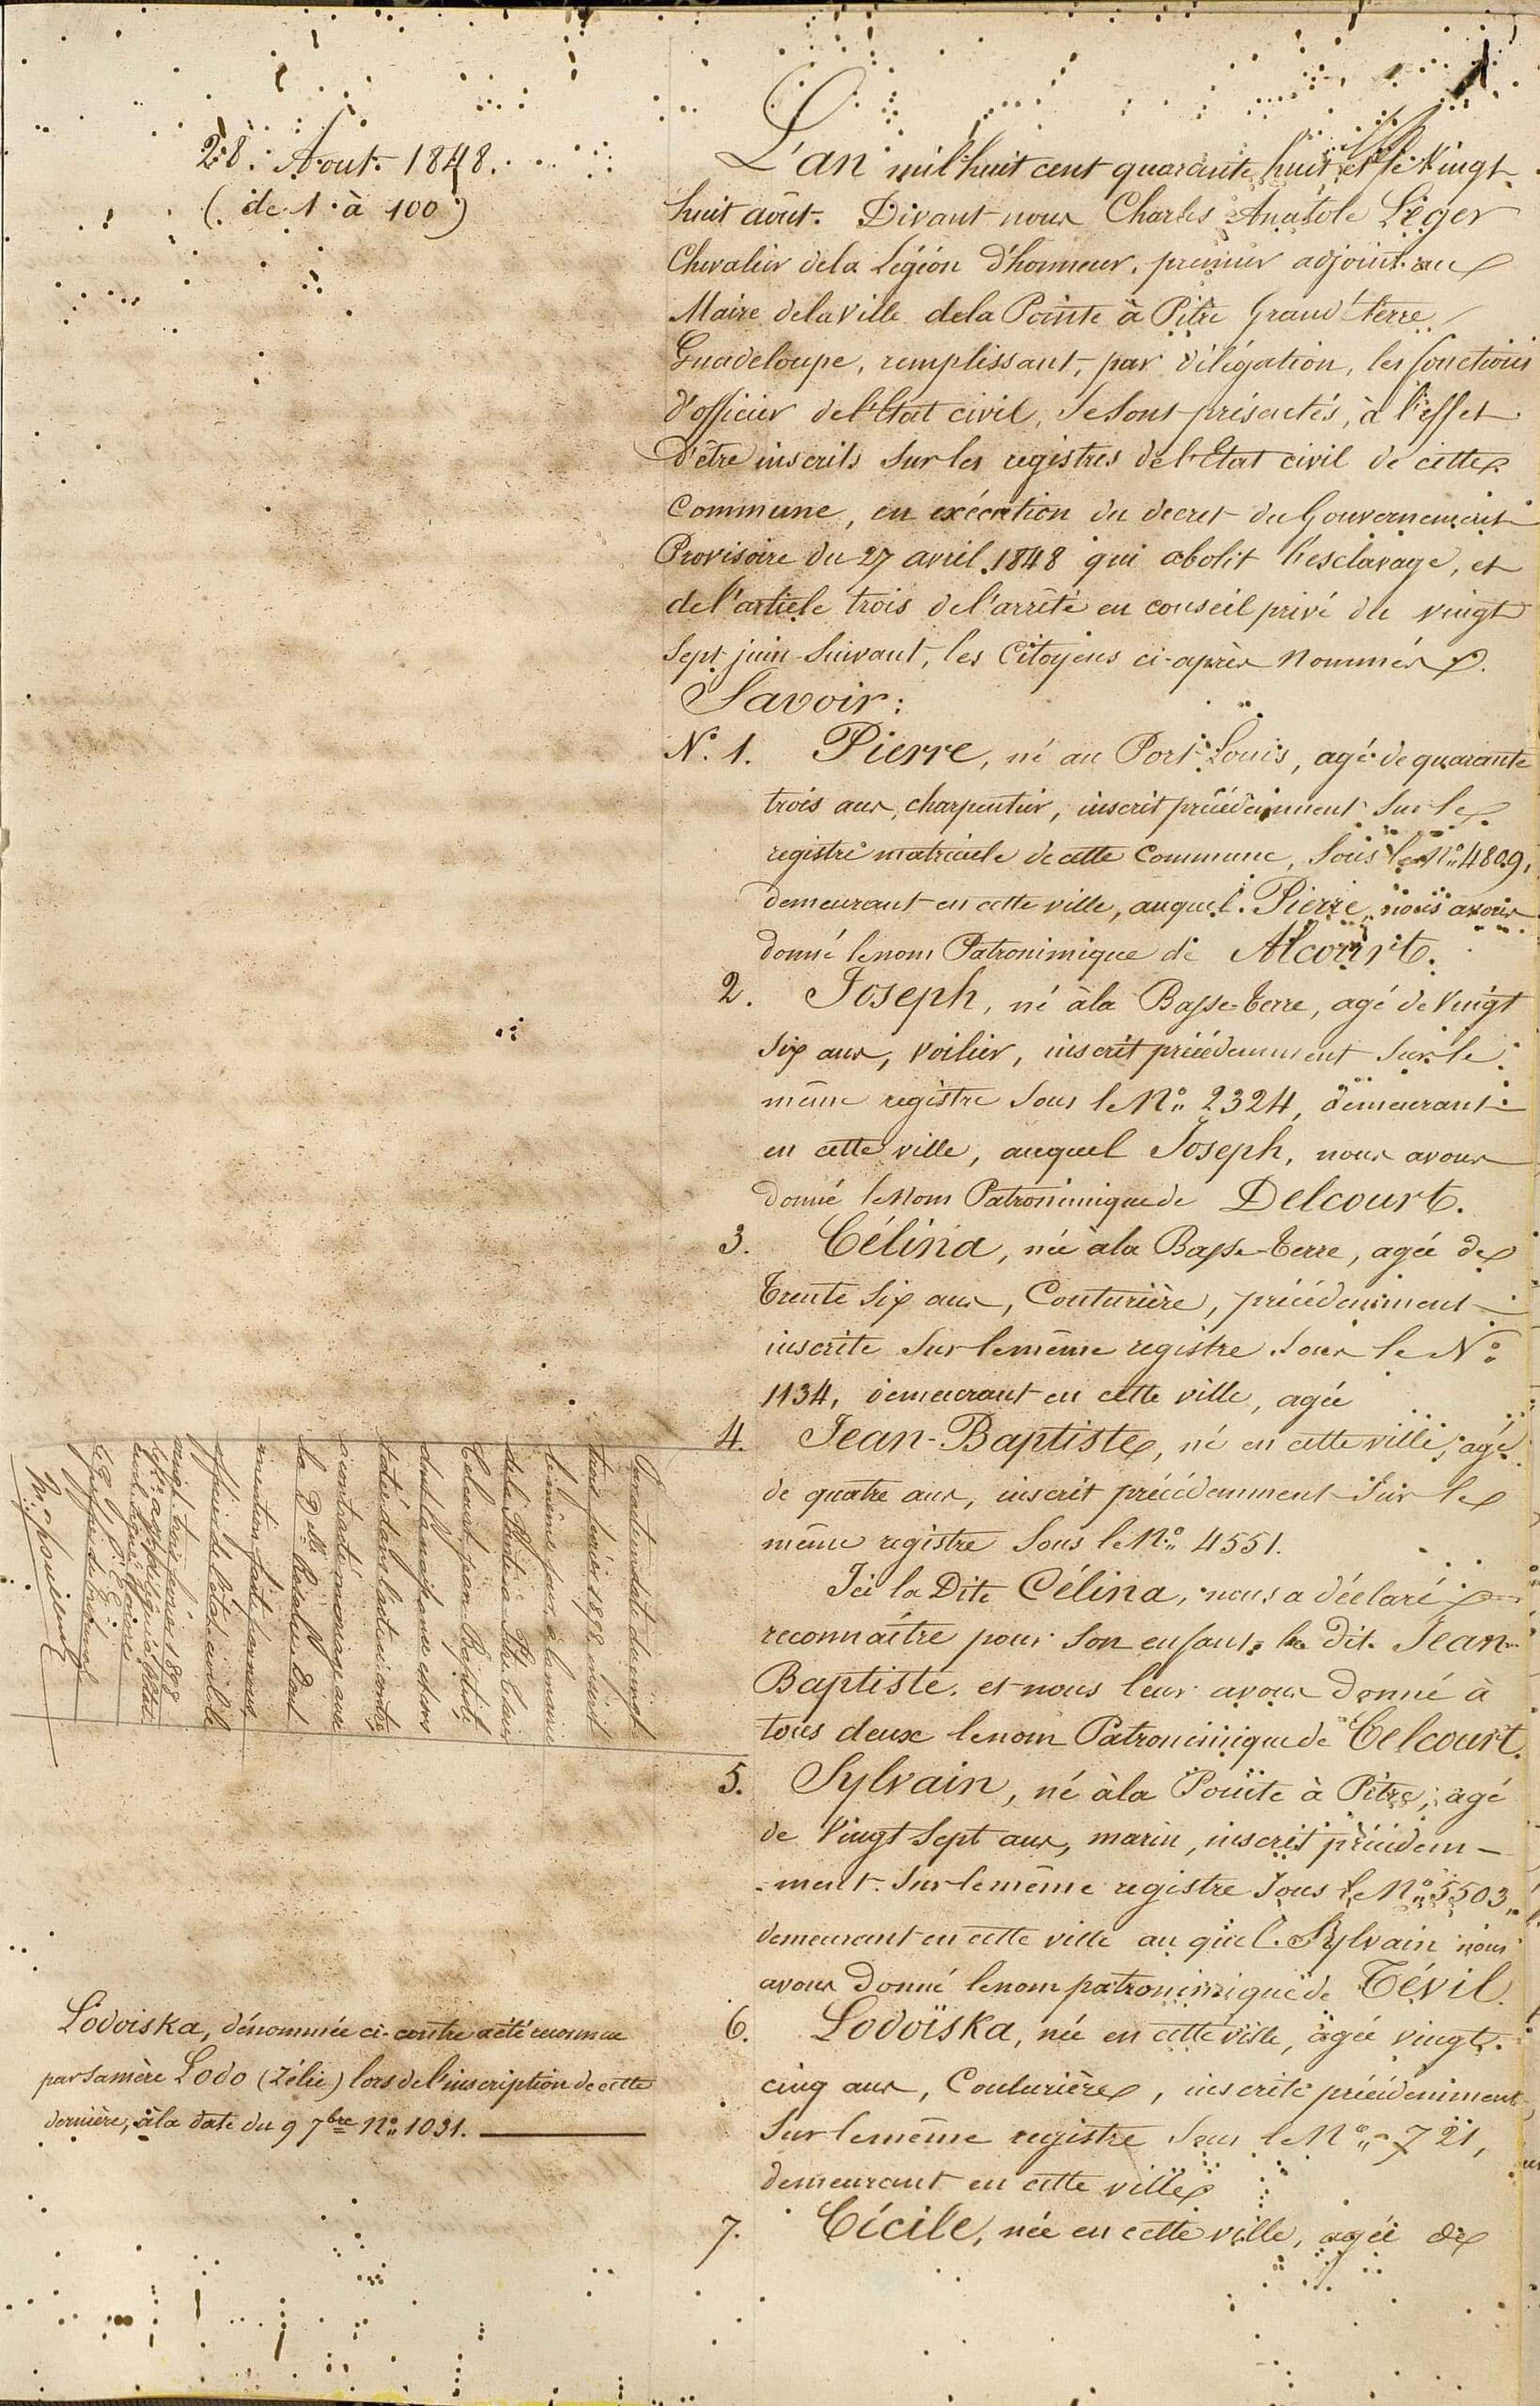 1
28. Aout. 1848.
(de 1 à 100)
L'an mil huit cent quarante huit et le vingt
huit août. Divant nous Charles Anatole Léger
Chevalier dela Légion d'honneur, premier adjoint au
Maire dela Ville dela Pointe à Pitre Grand'terre
Guadeloupe, remplissant, par délégation, les fonctions
d'officier del'Etat civil, se sont présentés, à l'effet
D'être inscrits sur les registres del'Etat civil de cette
Commune, en exécution du decret du Gouvernement
Provisoire du 27 avril 1848 qui abolit l'esclavage, et
del'article trois del'arrêté en conseil privé du vingt
Sept juin suivant, les Citoyens ci-après Nommés.
Savoir:
N.° 1. Pierre, né au Port Louis, agé de quarante
trois ans, charpentier, inscrit précédemment sur le
registre matricule de cette Commune, sous le N.° 4809,
demeurant en cette ville, auquel Pierre, nous avons
donné le nom Patronimique de Alcourt.
2. Joseph, né àla Basse-terre, agé de Vingt
Six ans, voilier, inscrit précédemment sur le
même registre sous le N.° 2324, demeurant
en cette ville, auquel Joseph, nous avons
donné le Nom Patronimique de Delcourt.
3. Célina, née àla Basse-terre, agée de
Trente Six ans, Couturière, précédemment
inscrite sur le même registre sous le N.°
1134, demeurant en cette ville, agée
4. Jean-Baptiste, né en cette ville, agé
de quatre ans, inscrit précédemment sur le
même registre sous le N.° 4551.
Ici la Dite Célina, nous a déclaré
reconnaître pour son enfant, le dit Jean-
Baptiste, et nous leur avons donné à
tous deux le nom Patronimique de Celcourt.
5. Sylvain, né àla Pointe à Pitre, agé
de Vingt Sept ans, marin, inscrit précédem-
-ment. sur le même registre sous le N.° 5503,
demeurant en cette ville au quel Sylvain nous
avons donné le nom patronimique de Tévil.
6. Lodoïska, née en cette ville, agée vingt.
cinq ans, Couturière, inscrite précédemment
sur le même registre sous le N.° 721,
demeurant en cette ville
7. Cécile, née en cette ville, agée de
Par acte en date du vingt
trois février 1898, inscrit
le même jour, à la mairie
de la Pointe à Pitre, le sieur
Celcourt Jean-Baptiste
dont la naissance est cons
tatée dans l'acte ci-contre,
a contracté mariage avec
la Dlle
mention faite par nous
officier de l'état civil le
vingt trois février 1898
Lodoiska, dénommée ci-contre a été reconnue
par sa mère Lodo (Zélie) lors de l'inscription de cette
dernière, àla date du 9 7bre N.° 1031.